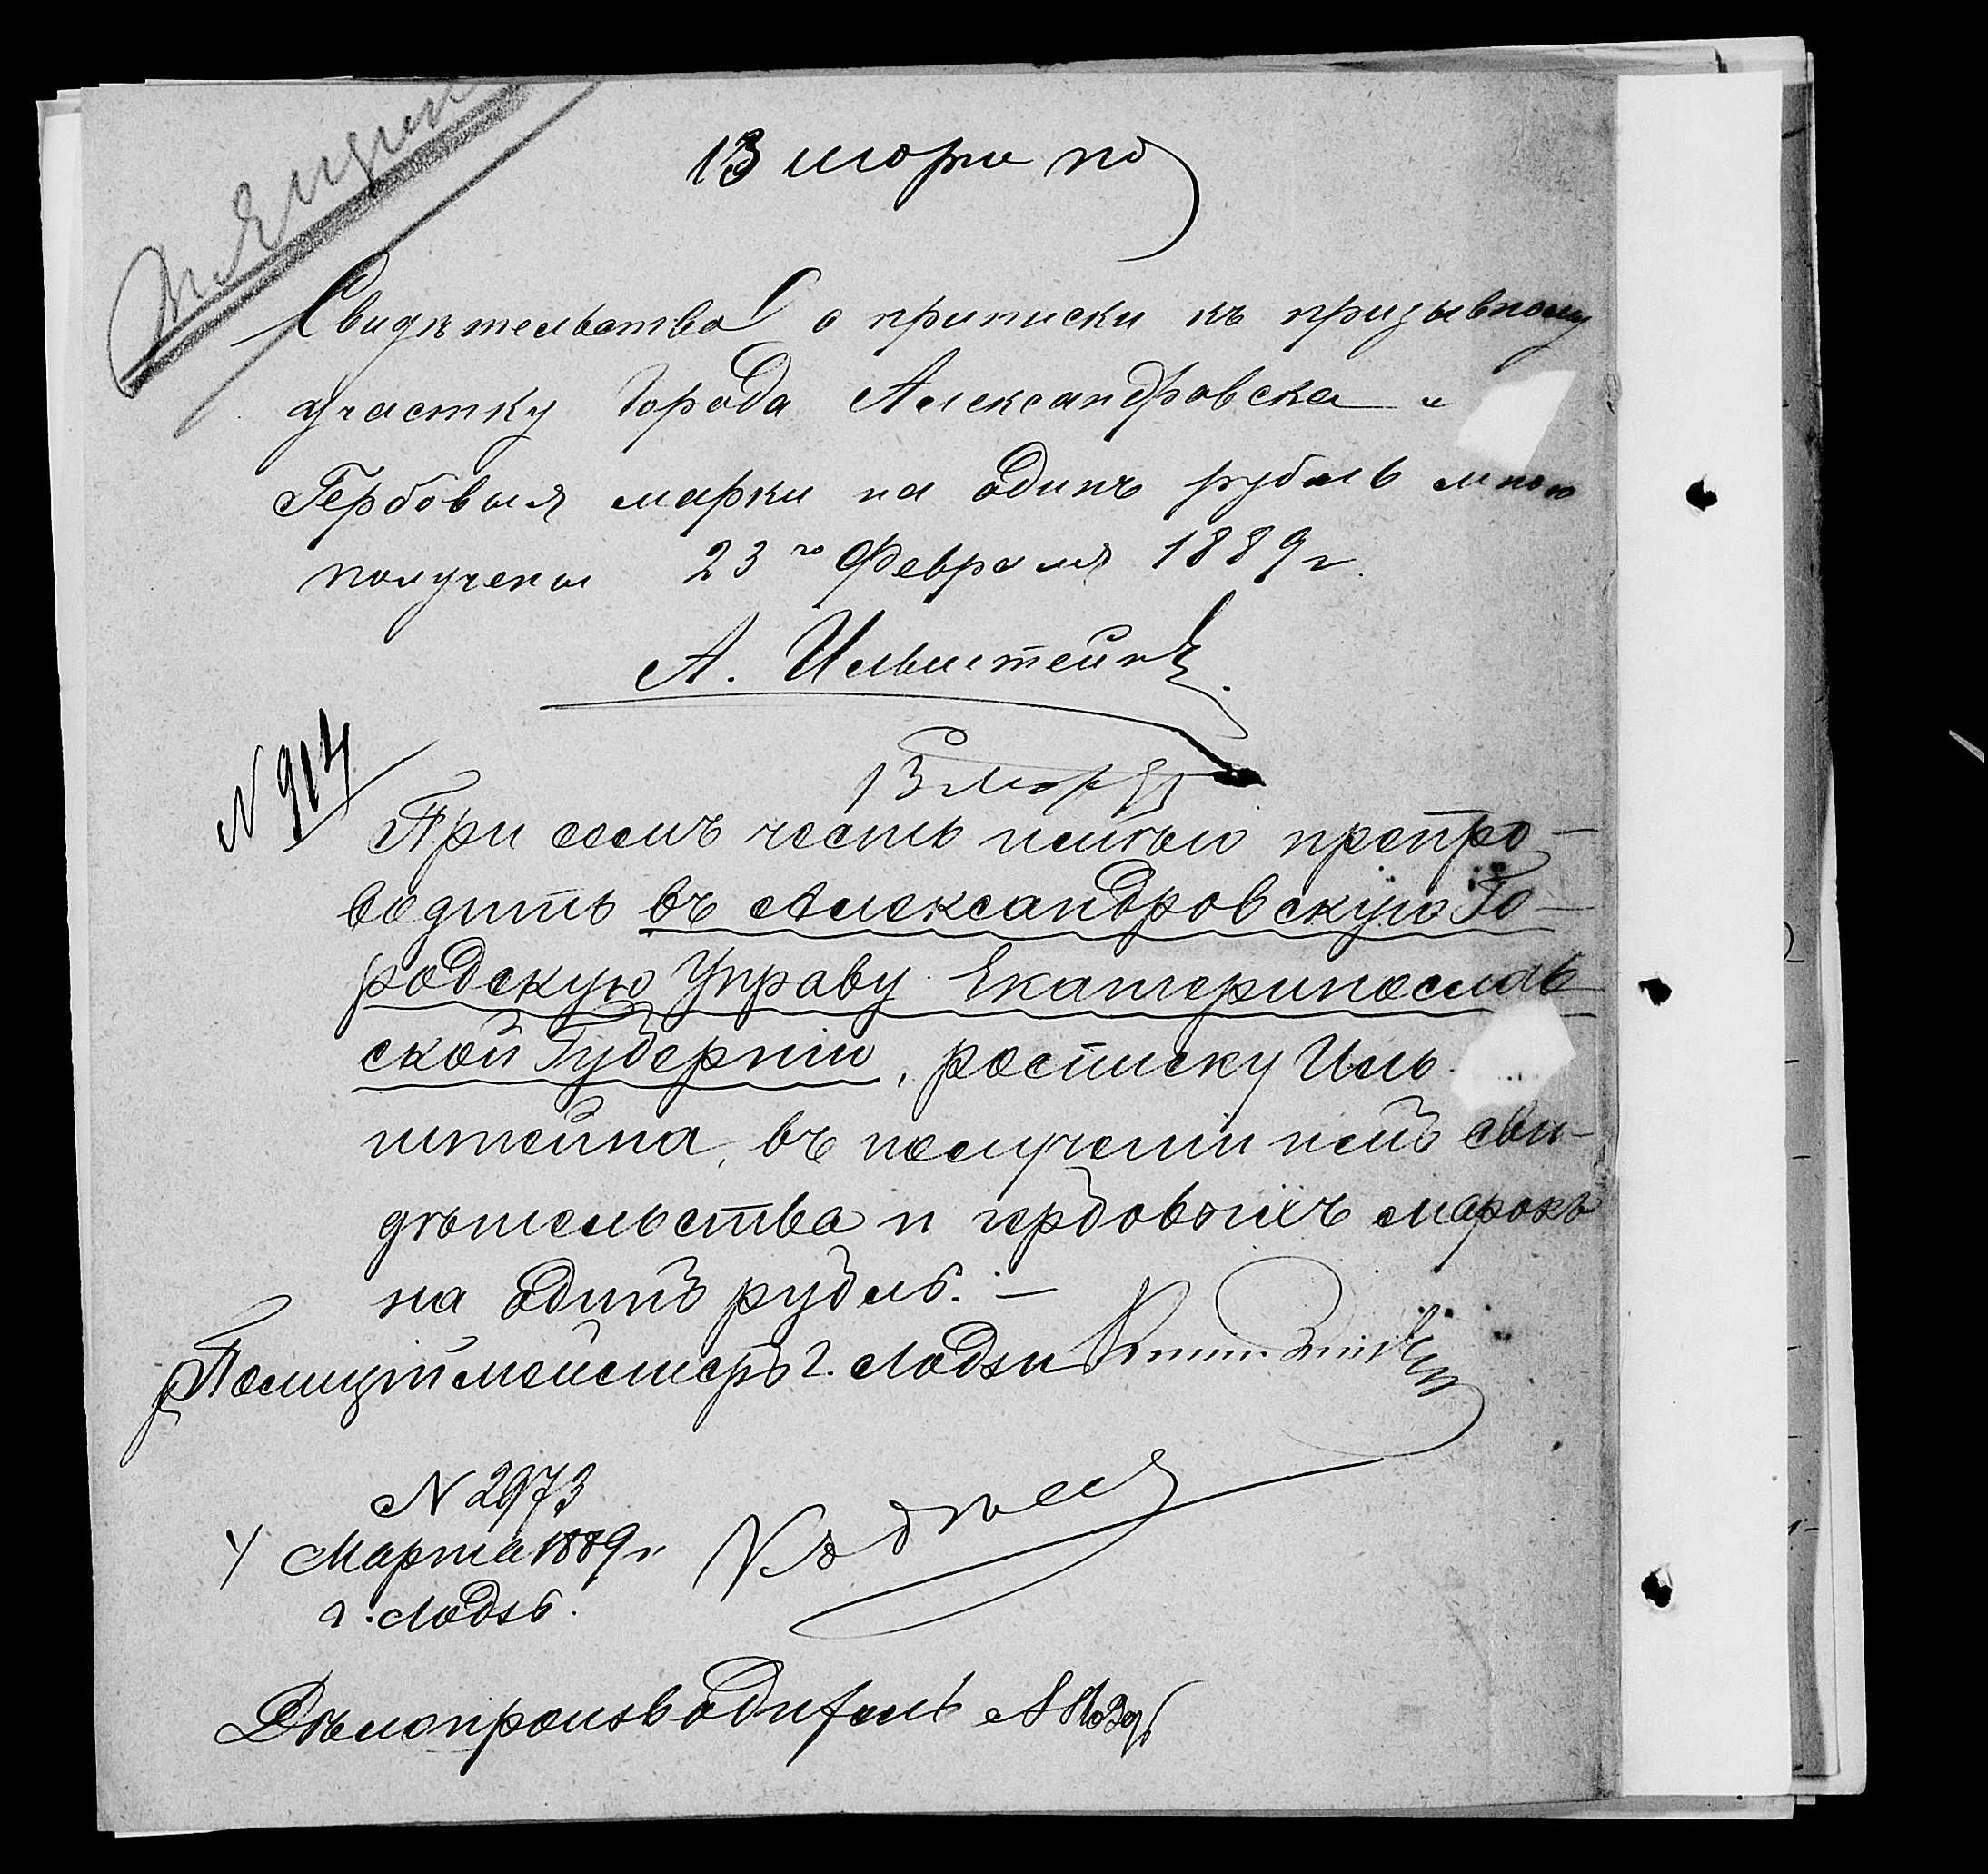 13 марта
Свидѣтельство о приписки къ призывному
участку Города Александровска и
Гербовыя марки на одинъ рубль мною
получены 23го Февраля 1889 г.
А. Ильштейнъ
N 914
13 Марта
При семъ честь имѣю препро-
водить въ Александровскую Го-
родскую Управу Екатеринослав
ской Губерніи, росписку Иль
штейна, въ полученіи имъ сви-
дѣтельства и гербовыхъ марокъ
на одинъ рубль. —
Полиціймейстеръ г. Лодзи
N 2973
4 Марта 1889 г.
г. Лодзь.
Дѣлопроизводитель